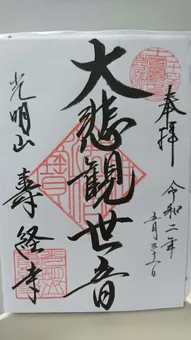 奉拝
令和二年
五月三十一日
大悲観世音
光明山
壽経寺